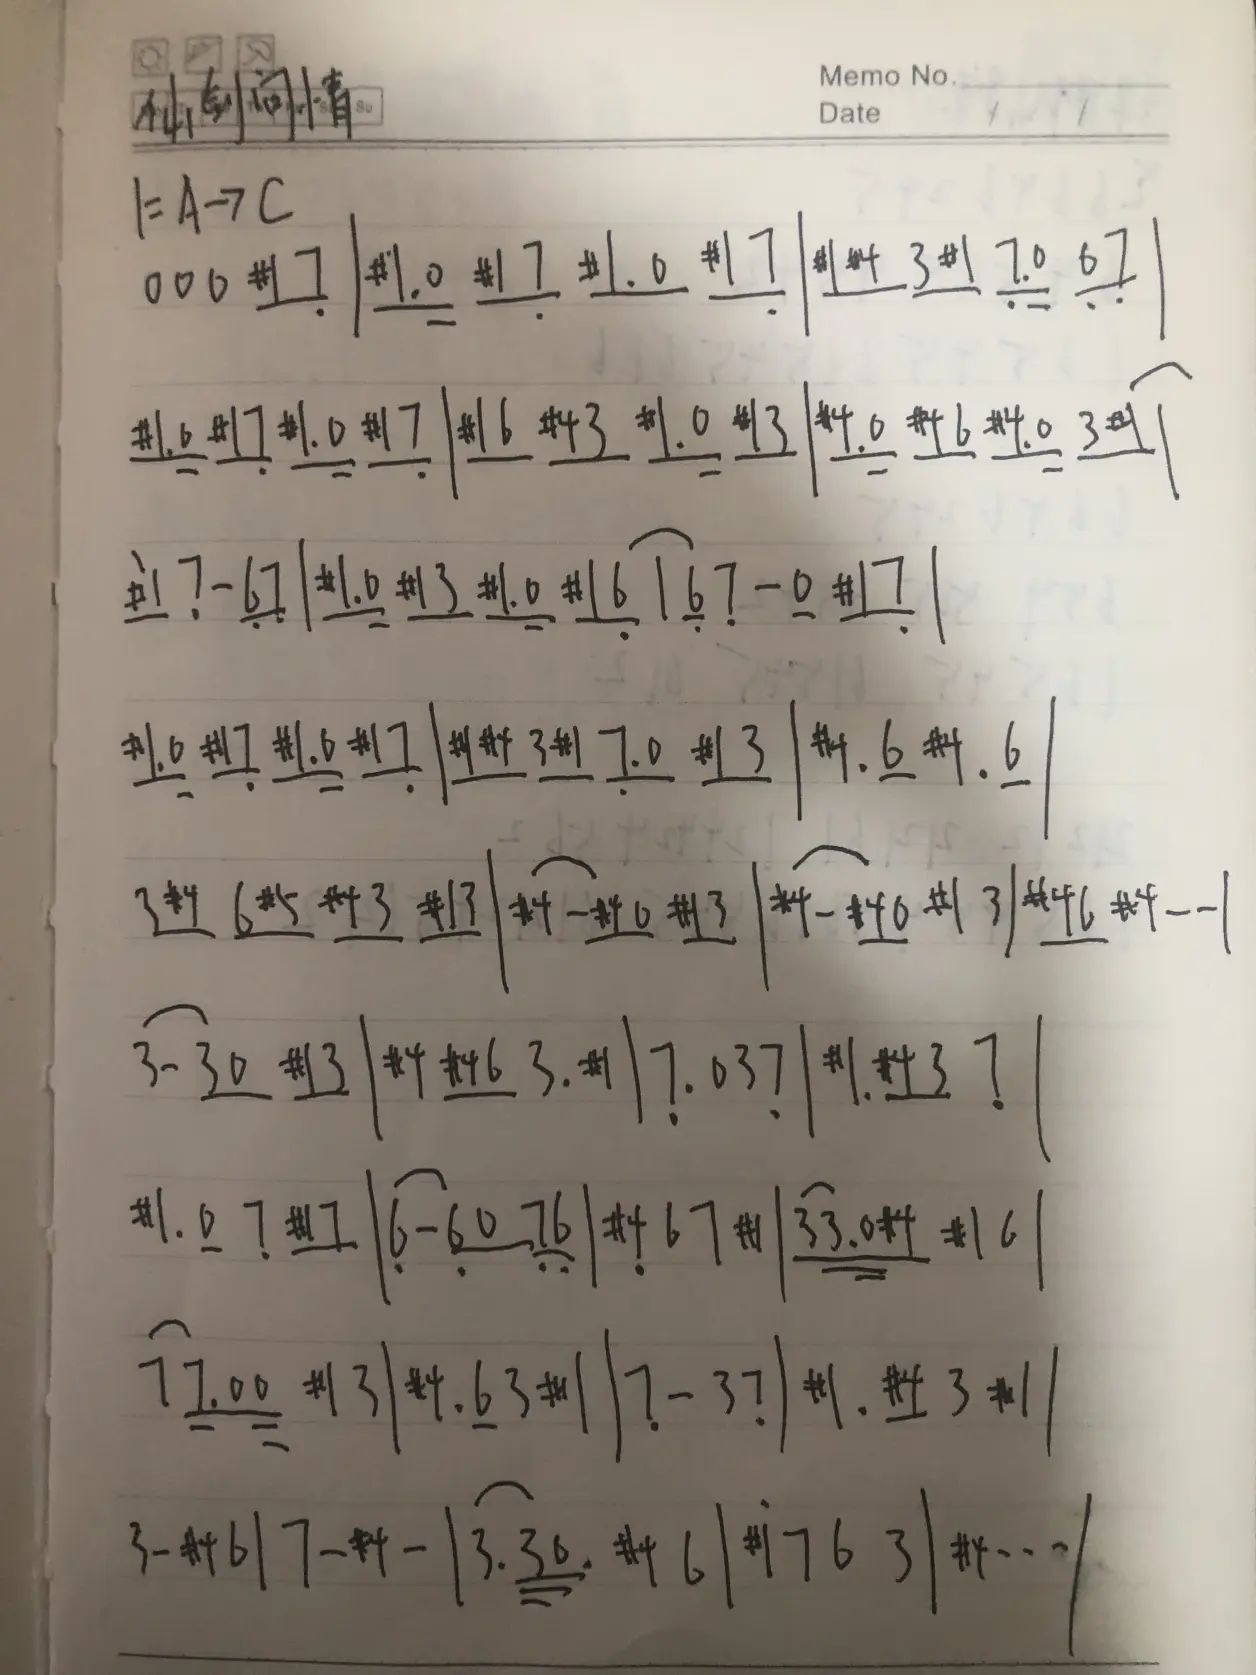 Memo No.
Date / /
仙剑问情
1=A→C
0 0 0 #1 7 | #1.0 #1 7 #1.0 #1 7 | #1 #4 3 #1 7.0 6 7 |
#1.0 #1 7 #1.0 #1 7 | #1 6 #4 3 #1.0 #1 3 | #4.0 #4 6 #4.0 3 #1 |
#1 7 - 6 7 | #1.0 #1 3 #1.0 #1 6 | 6 7 - 0 #1 7 |
#1.0 #1 7 #1.0 #1 7 | #1 #4 3 #1 7.0 #1 3 | #4. 6 #4. 6 |
3 #4 6 #5 #4 3 #1 3 | #4 - #4 0 #1 3 | #4 - #4 0 #1 3 | #4 6 #4 - - |
3 - 3 0 #1 3 | #4 #4 6 3. #1 | 7. 0 3 7 | #1. #4 3 7 |
#1. 0 7 #1 7 | 6 - 6 0 7 6 | #4 6 7 #1 | 3 3.0 #4 #1 6 |
7 7.0 0 #1 3 | #4. 6 3 #1 | 7 - 3 7 | #1. #4 3 #1 |
3 - #4 6 | 7 - #4 - | 3. 3 0. #4 6 | #1 7 6 3 | #4 - - - |